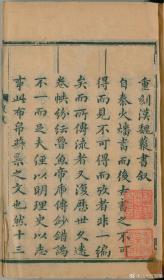 重刻漢魏叢書叙
自秦火燔書而後古書之不可
得而見不可得而攷者非一編
矣而所傳流者又復歷世久遠
卷帙紛紜魯魚帝虎傳鈔錯譌
不一而足夫經以明理史以志
事此布帛菽粟之文也然十三